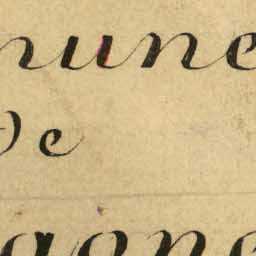 mune
De
agne